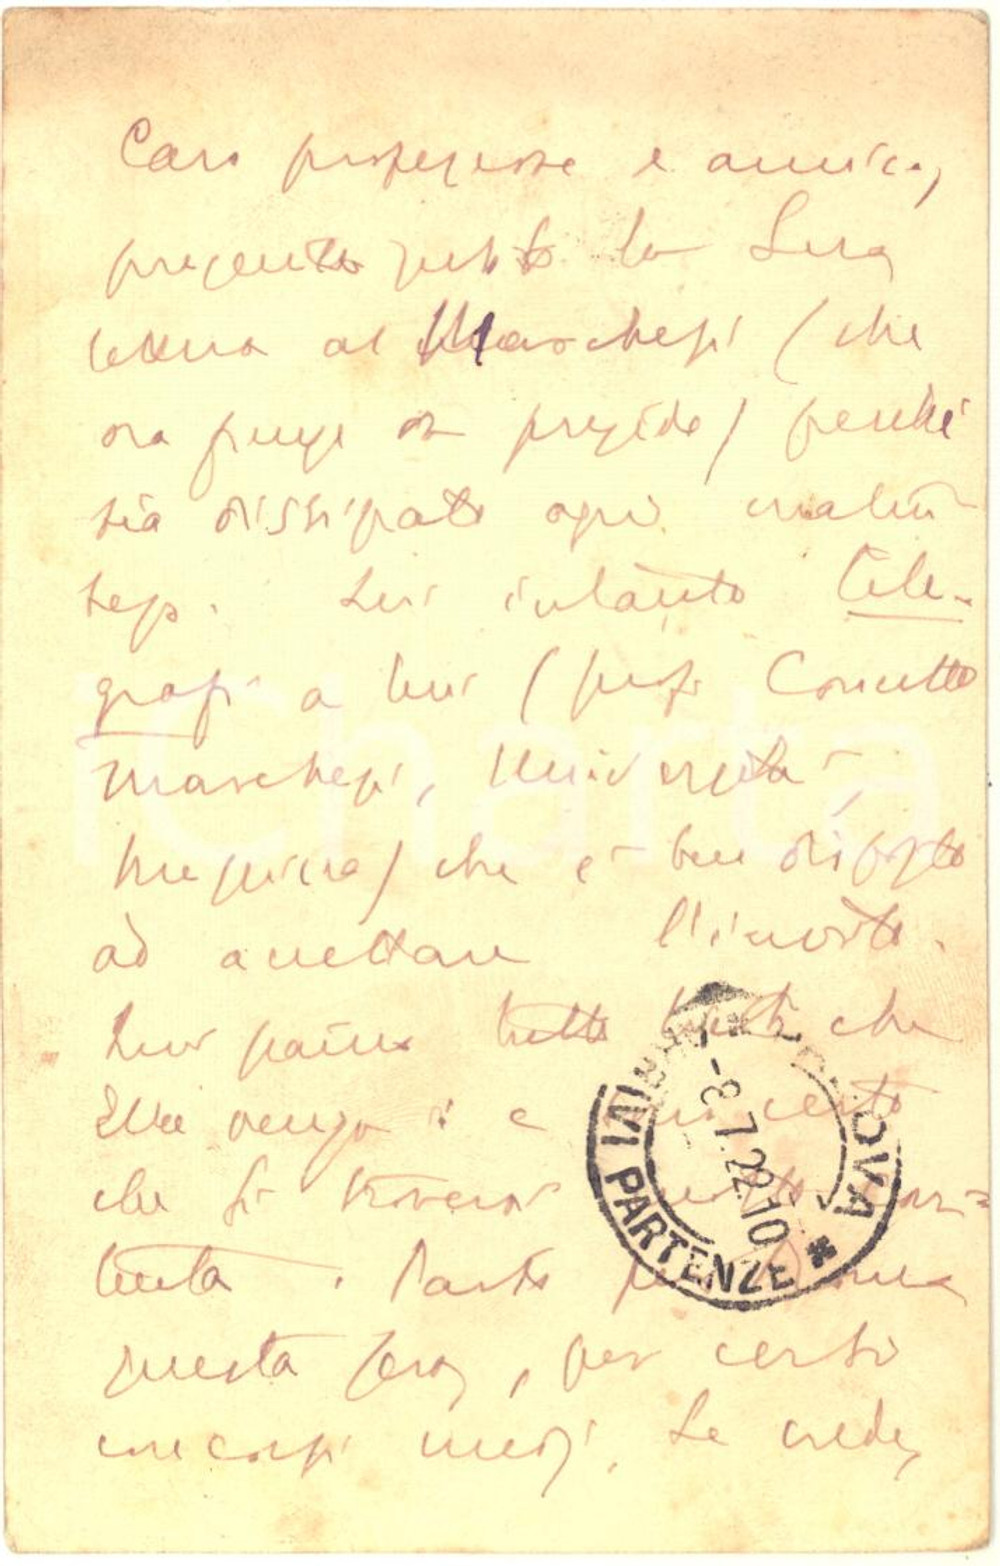 Caro professore e amico,
presento subito la Sua
lettera al Marchesi (che
ora funge da preside) perché
sia dissipato ogni malin
teso. Lei intanto tele-
grafi a lui (prof. Concetto
Marchesi, Università,
Messina) che è ben disposto
ad accettare l'invito.
Lui farà tutto che
Ella venga: e certo
che si troverà
tenta. Parto per
questa sera, per certi
concorsi medi. Se crede,
MESSINA PARTENZE
8-7.22.10
iCharta